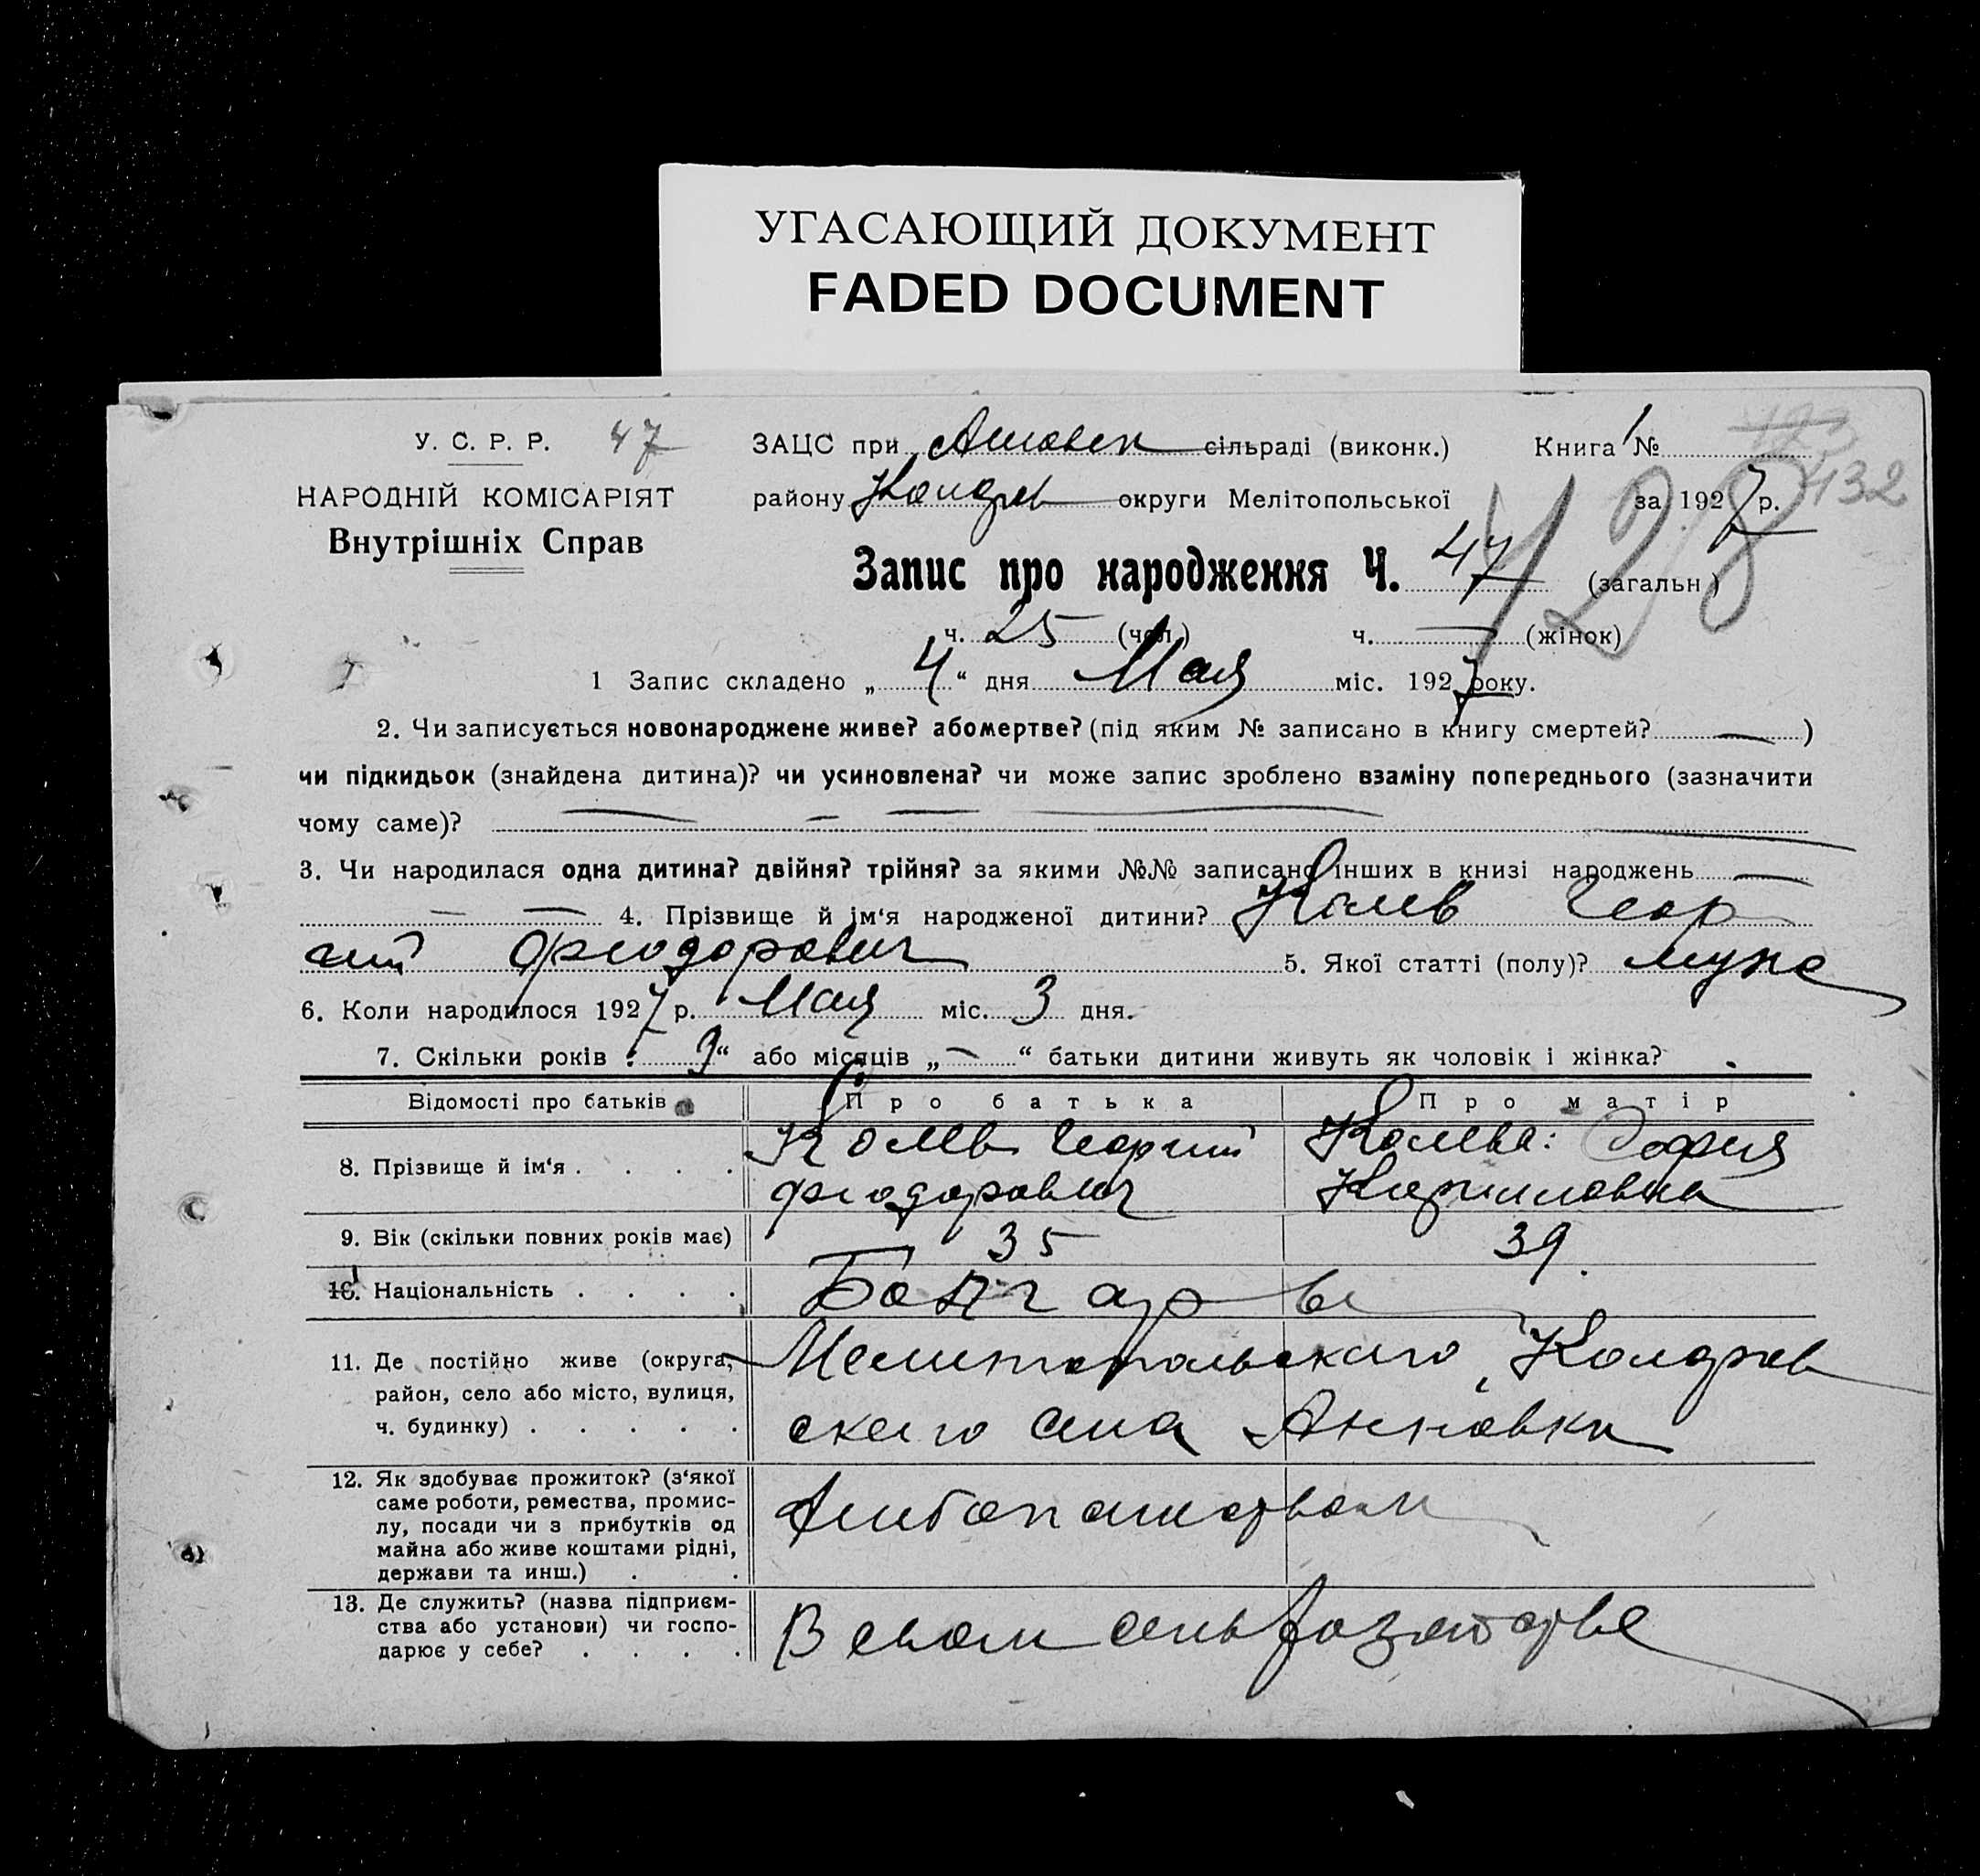 УГАСАЮЩИЙ ДОКУМЕНТ
FADED DOCUMENT
У. С. Р. Р. 47
НАРОДНІЙ КОМІСАРІЯТ
Внутрішніх Справ
ЗАЦС при сільраді (виконк.) Книга 1 №
району округи Мелітопольської за 1927 р.
123
132
128
Запис про народження Ч. 47 (загальн)
ч. 25 (чол.) ч. — (жінок)
1 Запис складено „4“ дня Мая міс. 1927 року.
2. Чи записується новонароджене живе? або мертве? (під яким № записано в книгу смертей? — )
чи підкидьок (знайдена дитина)? чи усиновлена? чи може запис зроблено взаміну попереднього (зазначити
чому саме)? — — — —
3. Чи народилася одна дитина? двійня? трійня? за якими №№ записано інших в книзі народжень —
— — 4. Прізвище й ім‘я народженої дитини? Колев Геор
гий Феодорович 5. Якої статті (полу)? муже
6. Коли народилося 1927 р. Мая міс. 3 дня.
7. Скільки років „9“ або місяців „—“ батьки дитини живуть як чоловік і жінка?
Відомості про батьків Про батька Про матір
8. Прізвище й ім‘я . . . . Колев Георгий Колева: София
Феодорович Кирилловна
9. Вік (скільки повних років має) 35 39
10. Національність . . . . Болгары
11. Де постійно живе (округа, район, село або місто, вулиця, ч. будинку) . . . . . Мелитопольского, Колдров
ского села Анновки
12. Як здобуває прожиток? (з‘якої
саме роботи, ремества, промис-
лу, посади чи з прибутків од
майна або живе коштами рідні,
держави та инш.) . . Хлебопашеством
13. Де служить? (назва підприєм-
ства або установи) чи госпо-
дарює у себе? . . . . В своем сель хозяйстве